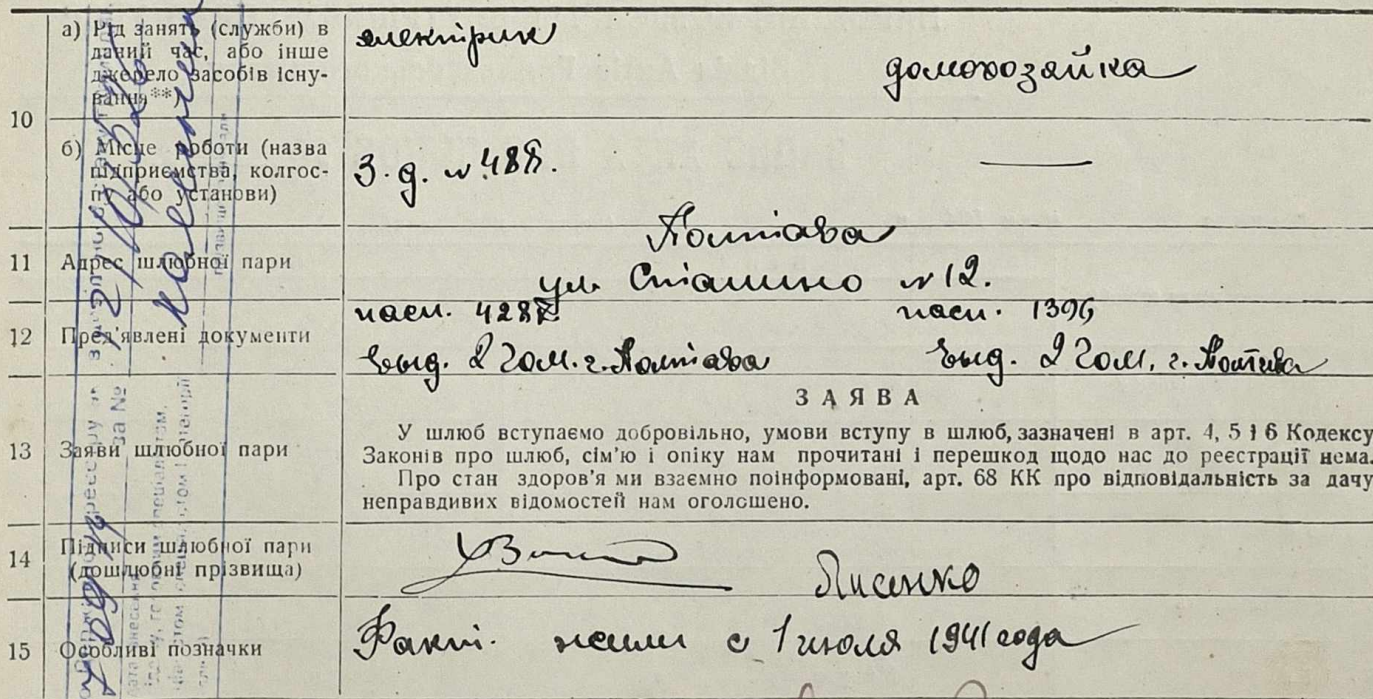 10
а) Рід занять (служби) в
даний час, або інше
джерело засобів існу-
вання**)
електрик
домохозяйка
б) Місце роботи (назва
підприємства, колгос-
пу або установи)
З. д.
—
11
Адрес шлюбної пари
Полтава
ул. Сталино № 12.
12
Пред'явлені документи
пасп.
пасп. 1396
выд. 2 гом. г. Полтава
выд. 2 гом. г. Полтава
13
Заяви шлюбної пари
ЗАЯВА
У шлюб вступаємо добровільно, умови вступу в шлюб, зазначені в арт. 4, 5 і 6 Кодексу
Законів про шлюб, сім'ю і опіку нам прочитані і перешкод щодо нас до реєстрації нема.
Про стан здоров'я ми взаємно поінформовані, арт. 68 КК про відповідальність за дачу
неправдивих відомостей нам оголошено.
14
Підписи шлюбної пари
(дошлюбні прізвища)
Лисенко
15
Особливі позначки
Факт. жили с 1 июля 1941 года
за №